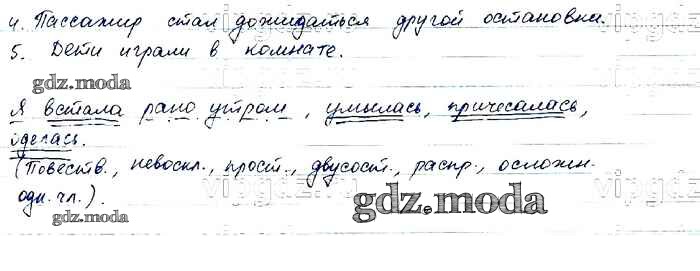 4. Пассажир стал дожидаться другой остановки.
5. Дети играли в комнате.
gdz.moda
Я встала рано утром, умылась, причесалась,
оделась.
(Повеств., невоскл., прост., двусост., распр., осложн.
одн. чл.).
gdz.moda
gdz.moda